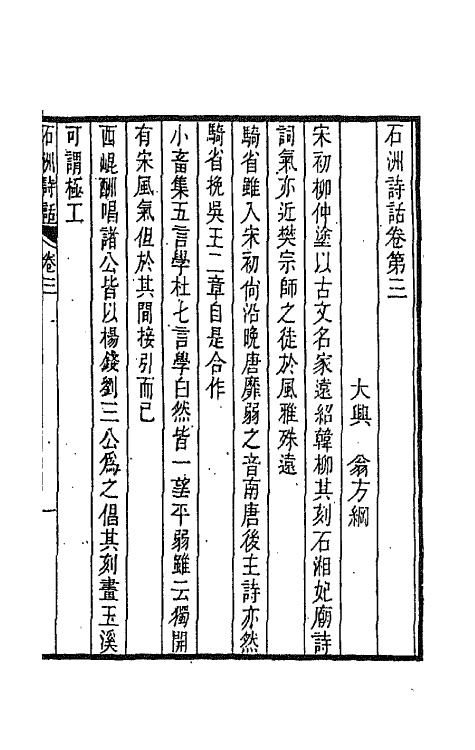 石洲詩話卷第三
大興　翁方綱
宋初柳仲塗以古文名家遠紹韓柳其刻石湘妃廟詩
詞氣亦近樊宗師之徒於風雅殊遠
騎省雖入宋初尙沿晩唐靡弱之音南唐後主詩亦然
騎省挽吳王二章自是合作
小畜集五言學杜七言學白然皆一望平弱雖云獨開
有宋風氣但於其間接引而已
西崐酬唱諸公皆以楊錢劉三公爲之倡其刻畫玉溪
可謂極工
石洲詩話　卷三　一